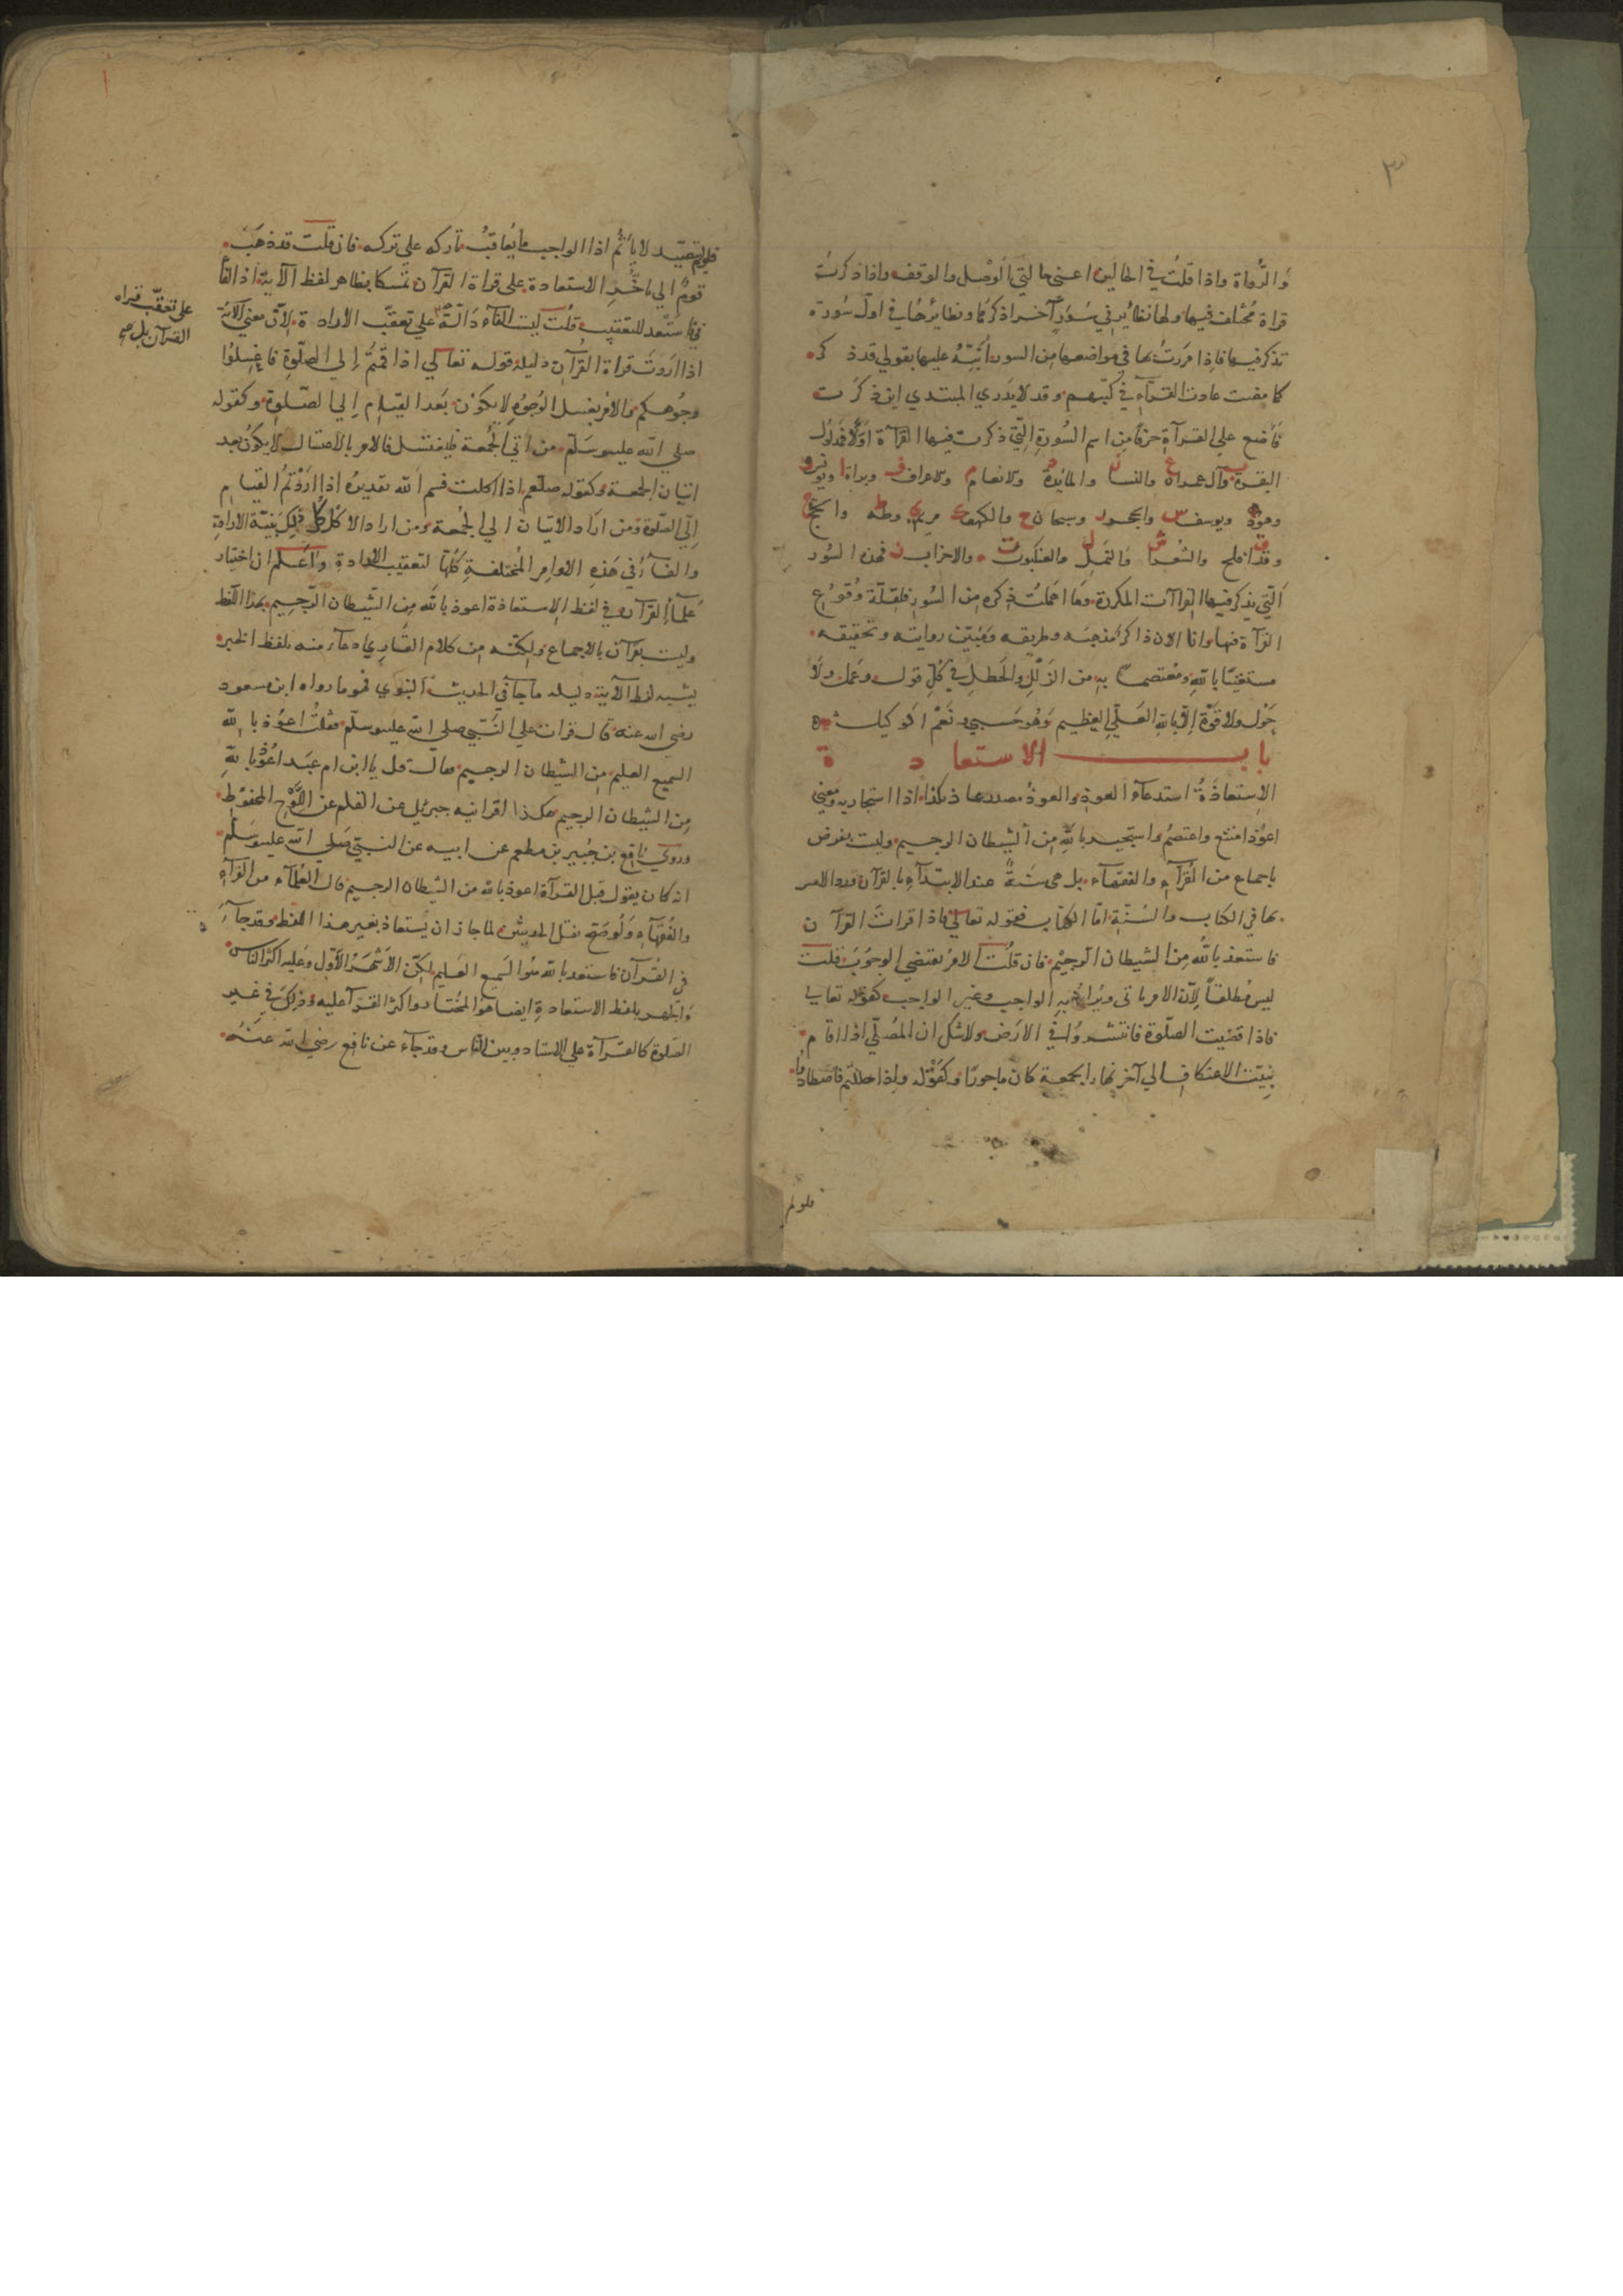 ٣
وَالرُّواة واذا قلتُ في الحالين اعني حالتي الوَصْل والوقف واذا ذكرتُ
قراة مُختلف فيها ولها نظائر في سُوَرٍ آخر اذكرها ونظائرها في اول سُورة
تذكر فيها فاذا مررتُ بها في مواضعها من السور أُنَبِّهُ عليها بقولي قد ذكر
كما مضت عادت القرّآءِ في كتبهم وقد لا يَدري المبتدي اين ذكرت
فأضع علي القرآةِ حرفًا من اسم السُّورةِ التي ذكرت فيها القرآة اوّلًا
البقرة ب وآل عمران ع والنسا ن والمائدة د والانعام م والاعراف ف وبراة ا ويونس و
وهود ه ويوسف س والحجر ر وسبحان ح والكهف ك مريم ي وطه ط والحج ج
وقد افلح ق والشُّعرا ش والنمل ل والعنكبوت ت والاحزاب ن فهذه السُّور
التي يذكر فيها القراات المكررة وما اهملتُ ذكره من السُّور فلقلّة وُقوُعِ
القرآة فيها وانا الان ذاكر مذهبه وطريقه ومُبيّن روايته وتحقيقه
مستعينًا بالله ومعتصمًا بهِ من الزَّلَلِ والخَطلِ في كُلِّ قول وعمل ولا
حَوْل ولا قوّة اِلّا باللهِ العَليِّ العظيم وهُو حَسبي ونعم الوكيل
باب الاستعادة
الاِستعاذَةُ استدعآء العوذ والعوذُ مصدر عاذ بكذا اذا استجار به ومعني
اعوُذ امتنع واعتصمُ واستجيد باللهِ مِن الشيطان الرجيم وليت بفرض
باجماع من القُرآءِ والفقهآء بل هي سُنةٌ عند الابتدآءِ بالقرآن وردالامر
بها في الكتاب والسُنّةِ امّا الكتاب فقوله تعالي فاذا قرات القرآن
فاستعذ باللهِ مِن الشيطان الرجيم فان قلتُ الامر يقتضي الوجوُبَ قلت
ليس مُطلقاً لِأنّ الامر ياتي ويُراد بهِ الواجب وغير الواجب كقوله تعالي
فاذا قضيت الصلّوة فانتشروُا في الارَض ولا شك ان المصُلّي اذا اقام
بنيّت الاعتكاف الي آخر نهار الجمعة كان ماجورًا وكَقَوْلِه واذا حللتم فاصطادُوا
فلو لم
فلولم يتصيّد لا يأثمُ اذا الواجب ما يُعاقَبُ تاركه علي تركه فان قلت قد ذهَبَ
قومٌ الي تاخُّر الاستعادة علي قراة القرآن تمسكا بظاهر لفظ الآية اذ الفآ
في فاستَعْد للتعقيب قلُت ليت الفآء دَالّةً علي تعقّب الارادة لاِنّ معني الآية
على تعقّب قراه
القرآن بل صح
اذا اَرَدتَ قراة القُرآن دليله قوله تعالي اذا قمتُم اِلي الصلّوةِ فاغسِلوُا
وجُوهكم والامر بغسل الوُجُوهِ لا يكوُن بَعد القيام اِلي الصّلوة وكقوله
صلي الله عليه وسَلّم من اتي الجُمعة فليغتسل فالامر بالاغتسال لا يكوُن بعد
اتيان الجمعة وكقوله صلعَم اذا اكلت فسم الله تقديرهُ اذا اردْتمُ القيام
اِلَي الصّلوة ومن ارَاد الاتيان الي الجُمعة ومن اراد الاكل كل ذلِكَ بنيّة الارادةِ
والفآءُ في هَذِهِ الاوامر المُختلفةِ كلُّها لتعقيب الارادة وَاعَلم ان اختيار
عُلمآءِ القرآن في لفظ الاِستعاذة اعوذ بالله مِن الشَّيطان الرَّجِيم بهذا اللفظ
وليت بقرآن بالاجماع ولكنّه مِن كلام القارِي دعآء منه بلفظ الخبر
يشبه لفظ الآية دليله ما جآ في الحديث النبوي نحو ما رواه ابن مسعود
رضي الله عنه قال قرات علي النَّبّي صلي الله عليه وسلّم فقلتُ اعوُذ بالله
السميع العليم مِن الشيطان الرجيم فقال قل يا ابن ام عبَد اعُوُذ باللهِ
مِن الشيطان الرجيم هكذا اقرانيه جبريُل عن القلم عن اللَّوْح المحفوُظ
وروي نافع بن جُبير بن مطعم عن ابيه عن النبيّ صَلي الله عليه وسَلّم
انه كان يقول قَبل القرآة اعوذ بالله من الشيطان الرجيم قال العُلمآء من القرآءِ
والفُقَهآءِ ولوصَحّ نقل الحديثين لما جاز ان يُستعاذ بغير هذا اللفظ وقد جآءَ
في القُرآن فاستعد بالله هوُ السَميع العَليم لكِنّ الاَشهَرُ الاَوّل وعَليه اكثر الناس
وَالجهر بلفظ الاستعادةِ ايضا هوَ المختار واكثر القرآ عليه وذلِكَ في غير
الصّلوة كالقرآة علي الاستاد وبين الناس وقد جآء عن نافع رضي الله عنهُ